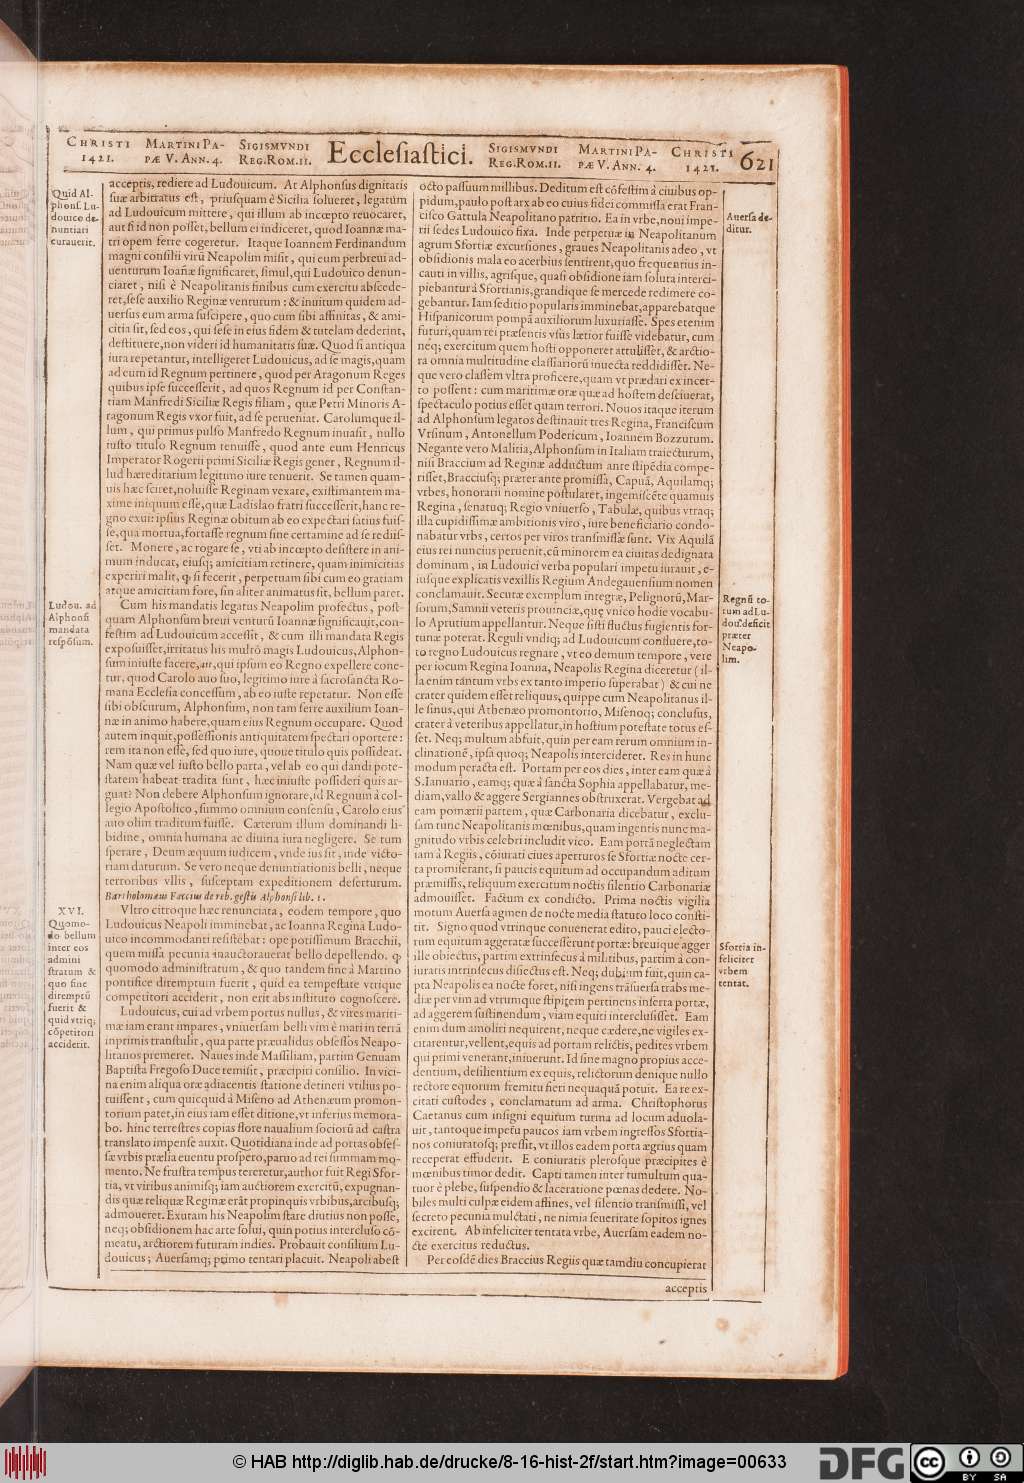 CHRISTI
1421.
MARTINI PA-
PÆ V. ANN. 4.
SIGISMVNDI
REG. ROM. II.
Ecclesiastici.
SIGISMVNDI
REG. ROM. II.
MARTINI PA-
PÆ V. ANN. 4.
CHRISTI
1421.
621
Quid Al-
phons. Lu-
douico de-
nuntiari
curauerit.
acceptis, rediere ad Ludouicum. At Alphonsus dignitatis
suæ arbitratus est, priusquam è Sicilia solueret, legatum
ad Ludouicum mittere, qui illum ab incœpto reuocaret,
aut si id non posset, bellum ei indiceret, quod Ioannæ ma-
tri opem ferre cogeretur. Itaque Ioannem Ferdinandum
magni consilii virū Neapolim misit, qui eum perbreui ad-
uenturum Ioānæ significaret, simul, qui Ludouico denun-
ciaret, nisi è Neapolitanis finibus cum exercitu abscede-
ret, sese auxilio Reginæ venturum: & inuitum quidem ad-
uersus eum arma suscipere, quo cum sibi affinitas, & ami-
citia sit, sed eos, qui sese in eius fidem & tutelam dederint,
destituere, non videri id humanitatis suæ. Quod si antiqua
iura repetantur, intelligeret Ludouicus, ad se magis, quam
ad eum id Regnum pertinere, quod per Aragonum Reges
quibus ipse successerit, ad quos Regnum id per Constan-
tiam Manfredi Siciliæ Regis filiam, quæ Petri Minoris A-
ragonum Regis vxor fuit, ad se perueniat. Carolumque il-
lum, qui primus pulso Manfredo Regnum inuasit, nullo
iusto titulo Regnum tenuisse, quod ante eum Henricus
Imperator Rogerii primi Siciliæ Regis gener, Regnum il-
lud hæreditarium legitimo iure tenuerit. Se tamen quam-
uis hæc sciret, noluisse Reginam vexare, existimantem ma-
xime iniquum esse, quæ Ladislao fratri successerit, hanc re-
gno exui: ipsius Reginæ obitum ab eo expectari satius fuis-
se, qua mortua, fortasse regnum sine certamine ad se rediis-
set. Monere, ac rogare se, vti ab incœpto desistere in ani-
mum inducat, eiusq; amicitiam retinere, quam inimicitias
experiri malit, ꝙ si fecerit, perpetuam sibi cum eo gratiam
atque amicitiam fore, sin aliter animatus sit, bellum paret.
Ludou. ad
Alphonsi
mandata
respōsum.
Cum his mandatis legatus Neapolim profectus, post-
quam Alphonsum breui venturū Ioannæ significauit, con-
festim ad Ludouicum accessit, & cum illi mandata Regis
exposuisset, irritatus his multō magis Ludouicus, Alphon-
sum iniuste facere, air, qui ipsum eo Regno expellere cone-
tur, quod Carolo auo suo, legitimo iure à sacrosancta Ro-
mana Ecclesia concessum, ab eo iuste repetatur. Non esse
sibi obscurum, Alphonsum, non tam ferre auxilium Ioan-
næ in animo habere, quam eius Regnum occupare. Quod
autem inquit, possessionis antiquitatem spectari oportere:
rem ita non esse, sed quo iure, quoue titulo quis possideat.
Nam quæ vel iusto bello parta, vel ab eo qui dandi pote-
statem habeat tradita sunt, hæc iniuste possideri quis ar-
guat? Non debere Alphonsum ignorare, id Regnum à col-
legio Apostolico, summo omnium consensu, Carolo eius
auo olim traditum fuisse. Cæterum illum dominandi li-
bidine, omnia humana ac diuina iura negligere. Se tum
sperare, Deum æquum iudicem, vnde ius sit, inde victo-
riam daturum. Se vero neque denuntiationis belli, neque
terroribus vllis, susceptam expeditionem deserturum.
Bartholomæus Faccius de reb. gestis Alphonsi lib. 1.
XVI.
Quomo-
do bellum
inter eos
admini
stratum &
quo fine
diremptū
fuerit &
quid vtriq;
cōpetitori
acciderit.
Vltro citroque hæc renunciata, eodem tempore, quo
Ludouicus Neapoli imminebat, ac Ioanna Regina Ludo-
uico incommodanti resistebat: ope potissimum Bracchii,
quem missa pecunia inauctorauerat bello depellendo. ꝙ
quomodo administratum, & quo tandem fine à Martino
pontifice diremptum fuerit, quid ea tempestate vtrique
competitori acciderit, non erit abs instituto cognoscere.
Ludouicus, cui ad vrbem portus nullus, & vires mariti-
mæ iam erant impares, vniuersam belli vim è mari in terrā
inprimis transtulit, qua parte præualidus obsessos Neapo-
litanos premeret. Naues inde Massiliam, partim Genuam
Baptista Fregoso Duce remisit, præcipiti consilio. In vici-
na enim aliqua oræ adiacentis statione detineri vtilius po-
tuissent, cum quicquid à Miseno ad Athenæum promon-
torium patet, in eius iam esset ditione, vt inferius memora-
bo. hinc terrestres copias flore naualium sociorū ad castra
translato impense auxit. Quotidiana inde ad portas obses-
sæ vrbis prælia euentu prospero, paruo ad rei summam mo-
mento. Ne frustra tempus tereretur, author fuit Regi Sfor-
tia, vt viribus animisq; iam auctiorem exercitū, expugnan-
dis quæ reliquæ Reginæ erāt propinquis vrbibus, arcibusq;
admoueret. Exutam his Neapolim stare diutius non posse,
neq; obsidionem hac arte solui, quin potius intercluso cō-
meatu, arctiorem futuram indies. Probauit consilium Lu-
douicus; Auersamq; primo tentari placuit. Neapoli abest
octo passuum millibus. Deditum est cōfestim à ciuibus op-
pidum, paulo post arx ab eo cuius fidei commissa erat Fran-
cisco Gattula Neapolitano patritio. Ea in vrbe, noui impe-
rii sedes Ludouico fixa. Inde perpetuæ in Neapolitanum
agrum Sfortiæ excursiones, graues Neapolitanis adeo, vt
obsidionis mala eo acerbius sentirent, quo frequentius in-
cauti in villis, agrisque, quasi obsidione iam soluta interci-
piebantur à Sfortianis, grandique se mercede redimere co-
gebantur. Iam seditio popularis imminebat, apparebatque
Hispanicorum pompā auxiliorum luxuriasse. Spes etenim
futuri, quam rei præsentis vsus lætior fuisse videbatur, cum
neq; exercitum quem hosti opponeret attulisset, & arctio-
ra omnia multitudine classiariorū inuecta reddidisset. Ne-
que vero classem vltra proficere, quam vt prædari ex incer-
to possent: cum maritimæ oræ quæ ad hostem desciuerat,
spectaculo potius esset quam terrori. Nouos itaque iterum
ad Alphonsum legatos destinauit tres Regina, Franciscum
Vrsinum, Antonellum Podericum, Ioannem Bozzutum.
Negante vero Malitia, Alphonsum in Italiam traiecturum,
nisi Braccium ad Reginæ adductum ante stipēdia compe-
risset, Bracciusq; præter ante promissa, Capuā, Aquilamq;
vrbes, honorarii nomine postularet, ingemiscēte quamuis
Regina, senatuq; Regio vniuerso, Tabulæ, quibus vtraq;
illa cupidissimæ ambitionis viro, iure beneficiario condo-
nabatur vrbs, certos per viros transmissæ sunt. Vix Aquilā
eius rei nuncius peruenit, cū minorem ea ciuitas dedignata
dominum, in Ludouici verba populari impetu iurauit, e-
iusque explicatis vexillis Regium Andegauensium nomen
conclamauit. Secutæ exemplum integræ, Pelignorū, Mar-
sorum, Samnii veteris prouinciæ, quę vnico hodie vocabu-
lo Aprutium appellantur. Neque sisti fluctus fugientis for-
tunæ poterat. Reguli vndiq; ad Ludouicum confluere, to-
to regno Ludouicus regnare, vt eo demum tempore, vere
per iocum Regina Ioanna, Neapolis Regina diceretur (il-
la enim tantum vrbs ex tanto imperio superabat) & cui ne
crater quidem esset reliquus, quippe cum Neapolitanus il-
le sinus, qui Athenæo promontorio, Misenoq; conclusus,
crater à veteribus appellatur, in hostium potestate totus es-
set. Neq; multum abfuit, quin per eam rerum omnium in-
clinationē, ipsa quoq; Neapolis intercideret. Res in hunc
modum peracta est. Portam per eos dies, inter eam quæ à
S. Ianuario, eamq; quæ à sancta Sophia appellabatur, me-
diam, vallo & aggere Sergiannes obstruxerat. Vergebat ad
eam pomœrii partem, quæ Carbonaria dicebatur, exclu-
sam tunc Neapolitanis mœnibus, quam ingentis nunc ma-
gnitudo vrbis celebri includit vico. Eam portā neglectam
iam à Regiis, cōiurati ciues aperturos se Sfortiæ nocte cer-
ta promiserant, si paucis equitum ad occupandum aditum
præmissis, reliquum exercitum noctis silentio Carbonariæ
admouisset. Factum ex condicto. Prima noctis vigilia
motum Auersa agmen de nocte media statuto loco consti-
tit. Signo quod vtrinque conuenerat edito, pauci electo-
rum equitum aggeratæ successerunt portæ: breuique agger
ille obiectus, partim extrinsecus à militibus, partim à con-
iuratis intrinsecus disiectus est. Neq; dubium fuit, quin ca-
pta Neapolis ea nocte foret, nisi ingens trāsuersa trabs me-
diæ per vim ad vtrumque stipitem pertinens inserta portæ,
ad aggerem sustinendum, viam equiti interclusisset. Eam
enim dum amoliri nequirent, neque cædere, ne vigiles ex-
citarentur, vellent, equis ad portam relictis, pedites vrbem
qui primi venerant, iniuerunt. Id sine magno propius acce-
dentium, desilientium ex equis, relictorum denique nullo
rectore equorum fremitu fieri nequaquā potuit. Ea re ex-
citati custodes, conclamatum ad arma. Christophorus
Caetanus cum insigni equitum turma ad locum aduola-
uit, tantoque impetu paucos iam vrbem ingressos Sfortia-
nos coniuratosq; pressit, vt illos eadem porta ægrius quam
receperat effuderit. E coniuratis plerosque præcipites è
mœnibus timor dedit. Capti tamen inter tumultum qua-
tuor è plebe, suspendio & laceratione pœnas dedere. No-
biles multi culpæ eidem affines, vel silentio transmissi, vel
secreto pecunia mulctati, ne nimia seueritate sopitos ignes
excirent. Ab infeliciter tentata vrbe, Auersam eadem no-
cte exercitus reductus.
Per eosdē dies Braccius Regiis quæ tamdiu concupierat
acceptis
Auersa de-
ditur.
Regnū to-
tum ad Lu-
douī. deficit
præter
Neapo-
lim.
Sfortia in-
feliciter
vrbem
tentat.
© HAB http://diglib.hab.de/drucke/8-16-hist-2f/start.htm?image=00633
DFG
cc
BY SA